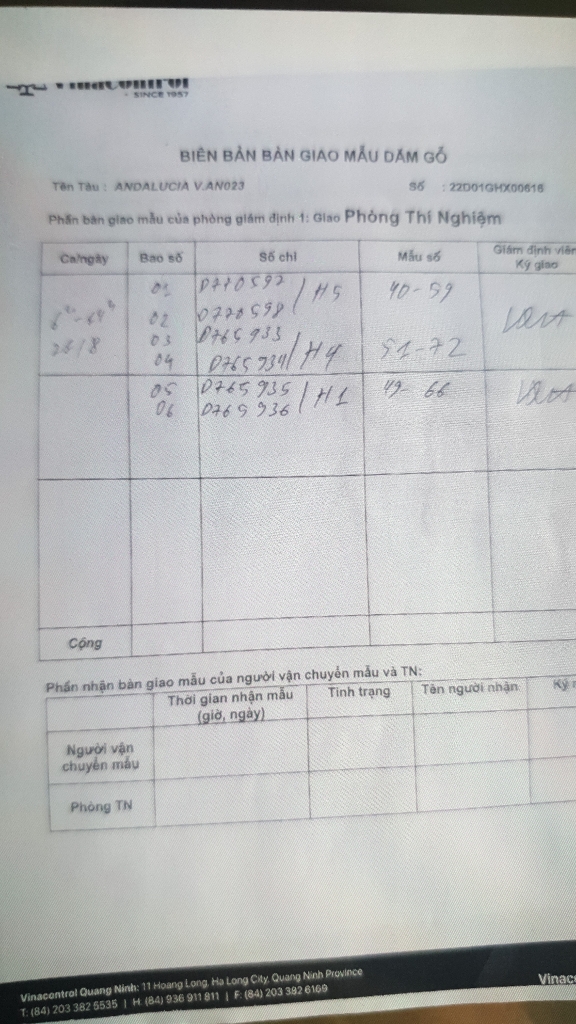 Vinacontrol
SINCE 1957
BIÊN BẢN BÀN GIAO MẪU DĂM GỖ
Tên Tàu : ANDALUCIA V.AN023 Số : 22D01GHX00616
Phần bàn giao mẫu của phòng giám định 1: Giao Phòng Thí Nghiệm
Ca/ngày Bao số Số chì Mẫu số Giám định viên
Ký giao
01 D770597 / H5 40-59
02 D770598
03 D765933
04 D765934 / H4 51-72
05 D765935 / H1 49-66
06 D765936
Cộng
Phần nhận bàn giao mẫu của người vận chuyển mẫu và TN:
Thời gian nhận mẫu
(giờ, ngày) Tình trạng Tên người nhận Ký
Người vận
chuyển mẫu
Phòng TN
Vinacontrol Quang Ninh: 11 Hoang Long, Ha Long City, Quang Ninh Province
T: (84) 203 382 5535 | H: (84) 936 911 811 | F: (84) 203 382 6169
Vinac